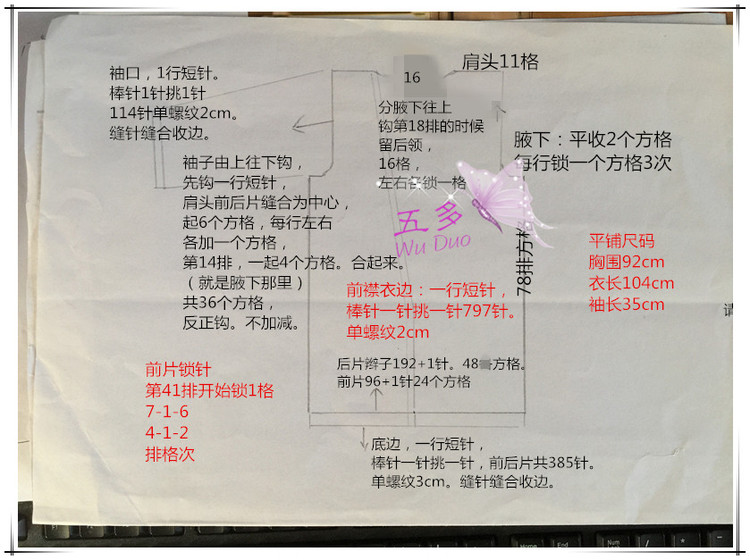 袖口，1行短针。
棒针1针挑1针
114针单螺纹2cm。
缝针缝合收边。
肩头11格
16
分腋下往上
钩第18排的时候
留后领，
16格，
左右各锁一格
腋下：平收2个方格
每行锁一个方格3次
袖子由上往下钩，
先钩一行短针，
肩头前后片缝合为中心，
起6个方格，每行左右
各加一个方格，
第14排，一起4个方格。合起来。
（就是腋下那里）
共36个方格，
反正钩。不加减。
五多
Wu Duo
78排方格
平铺尺码
胸围92cm
衣长104cm
袖长35cm
请
前襟衣边：一行短针，
棒针一针挑一针797针。
单螺纹2cm
后片辫子192+1针。48方格。
前片96+1针24个方格
前片锁针
第41排开始锁1格
7-1-6
4-1-2
排格次
底边，一行短针，
棒针一针挑一针，前后片共385针。
单螺纹3cm。缝针缝合收边。
Home
End
Num